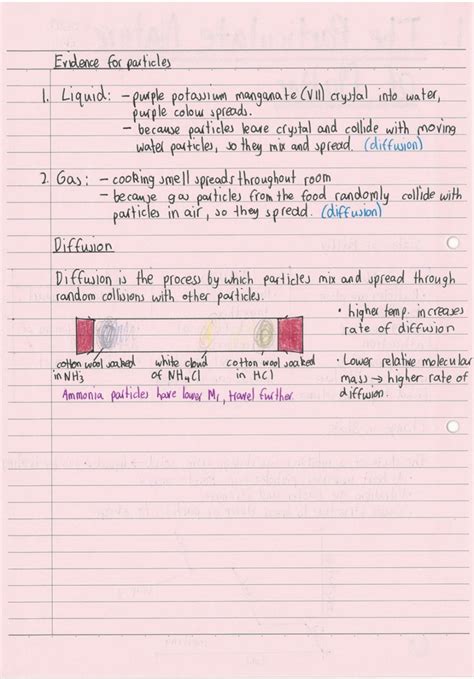 Evidence for particles
1. Liquid: – purple potassium manganate (VII) crystal into water,
purple colour spreads.
– because particles leave crystal and collide with moving
water particles, so they mix and spread. (diffusion)
2. Gas: – cooking smell spreads throughout room
– because gas particles from the food randomly collide with
particles in air, so they spread. (diffusion)
Diffusion
Diffusion is the process by which particles mix and spread through
random collisions with other particles.
· higher temp. increases
rate of diffusion
cotton wool soaked
in NH3
white cloud
of NH4Cl
cotton wool soaked
in HCl
· Lower relative molecular
mass → higher rate of
diffusion.
Ammonia particles have lower Mr, travel further.